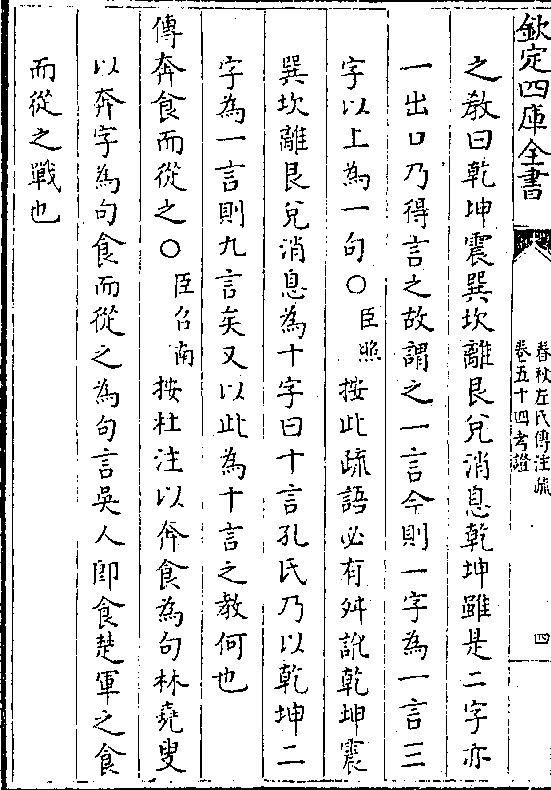 欽定四庫全書
春秋左氏傳注疏
卷五十四考證
四
之教曰乾坤震巽坎離艮兌消息乾坤雖是二字亦
一出口乃得言之故謂之一言今則一字為一言三
字以上為一句○臣照按此疏語必有舛訛乾坤震
巽坎離艮兌消息為十字曰十言孔氏乃以乾坤二
字為一言則九言矣又以此為十言之教何也
傳奔食而從之○臣召南按杜注以奔食為句林堯叟
以奔字為句食而從之為句言吳人即食楚軍之食
而從之戰也